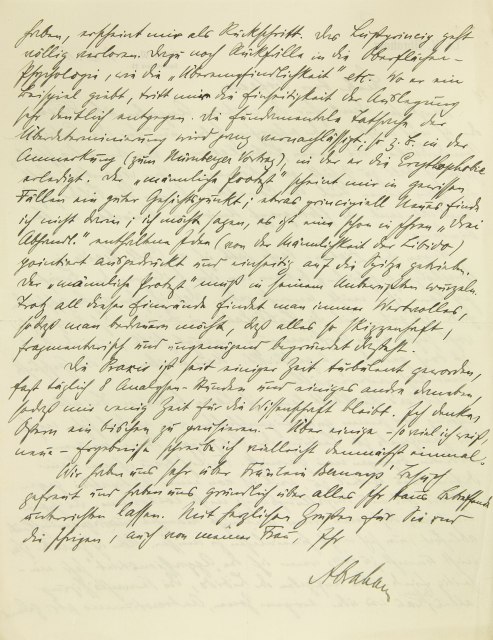 haben, erscheint mir als Rückschritt. Das Lustprinzip geht
völlig verloren. Dazu noch Rückfälle in die Oberflächen-
Psychologie, wie die „Überempfindlichkeit“ etc. Wo er ein
Beispiel giebt, tritt mir die Einseitigkeit der Auslegung
sehr deutlich entgegen. Die fundamentale Tatsache der
Überdeterminierung wird ganz vernachlässigt, so z. B. in der
Anmerkung (zum Nürnberger Vortrag), in der er die Erythrophobie
erledigt. Der „männliche Protest“ scheint mir in gewissen
Fällen ein guter Gesichtspunkt; etwas prinzipiell Neues finde
ich nicht darin; ich möchte sagen, es ist eine schon in Ihren „Drei
Abhandl.“ enthaltene Idee (von der Männlichkeit der Libido)
pointiert ausgedrückt und einseitig auf die Spitze getrieben.
Der „männliche Protest“ muß in seinem Unbewußten wurzeln.
Trotz all dieser Einwände findet man immer Wertvolles,
sodaß man bedauern möchte, daß alles so skizzenhaft,
fragmentarisch und ungenügend begründet dasteht.
Die Praxis ist seit einiger Zeit turbulent geworden,
fast täglich 8 Analysen-Stunden und einiges andre daneben,
sodaß mir wenig Zeit für die Wissenschaft bleibt. Ich denke,
Ostern ein bischen zu pausieren. – Über einige – soviel ich weiß,
neue – Ergebnisse schreibe ich vielleicht demnächst einmal.
Wir haben uns sehr über Fräulein Bernays' Besuch
gefreut und haben uns gründlich über alles Ihr Haus Betreffende
unterrichten lassen. Mit herzlichen Grüßen für Sie und
die Ihrigen, auch von meiner Frau, Ihr
Abraham